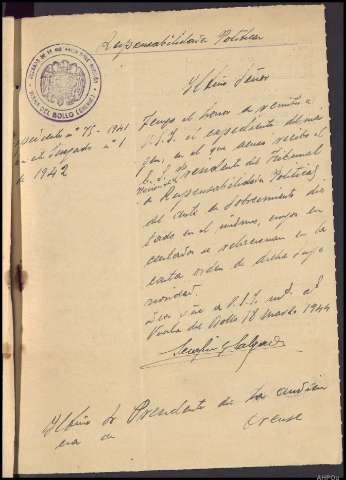 Responsabilidades Políticas
JUZGADO DE 1ª INSTANCIA
VIANA DEL BOLLO (ORENSE)
Expediente nº 75-1941
en el Juzgado nº 1
de 1942
Ilmo Señor
Tengo el honor de remitir a
V.S.I. el expediente del mar
gen, en el que acuse recibo el
Presidente del Tribunal
Nacional
de Responsabilidades Políticas
del auto de sobreseimiento dic
tado en el mismo, cuyos en
cartados se relacionan en la
carta orden de dicha supe
rioridad.
Dios gue a V.S.I. ms. as.
Viana del Bollo 18 Marzo 1944
Ilmo Sr Presidente de la Audien
cia de
Orense
AHPOu